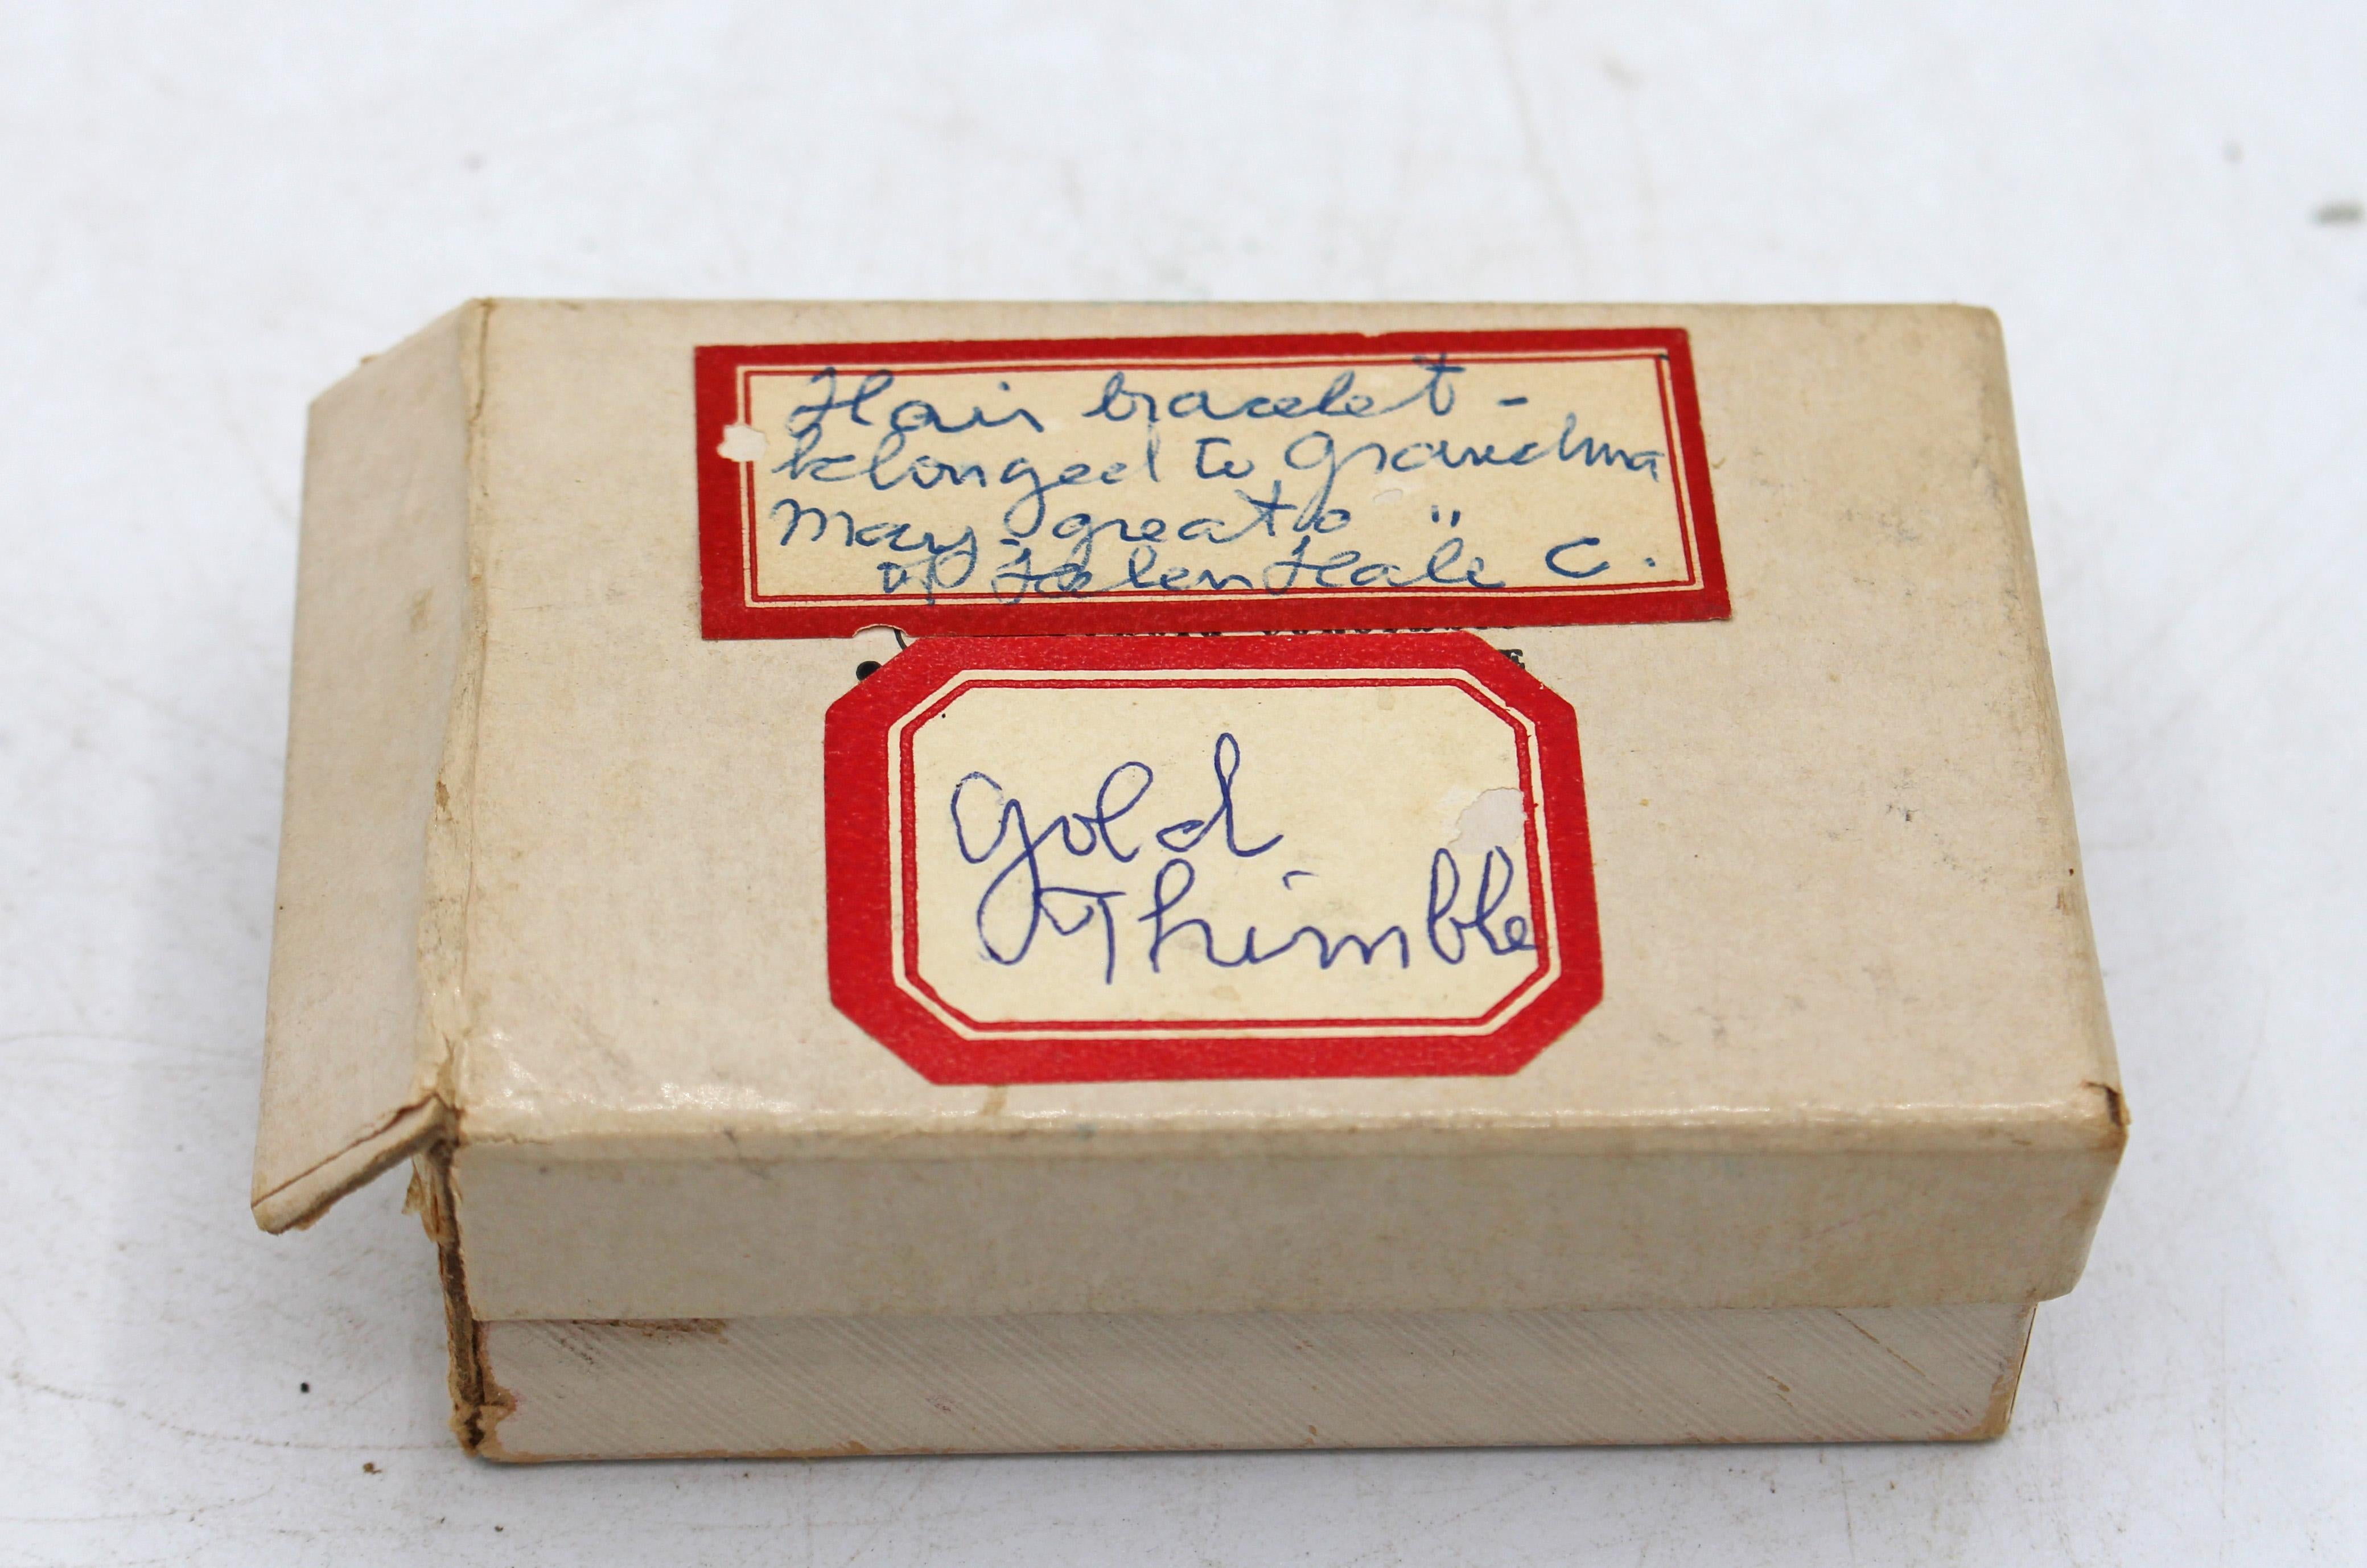 Hair bracelet -
belonged to Grandma
May. great "
of Helen Hale C.
Gold
Thimble